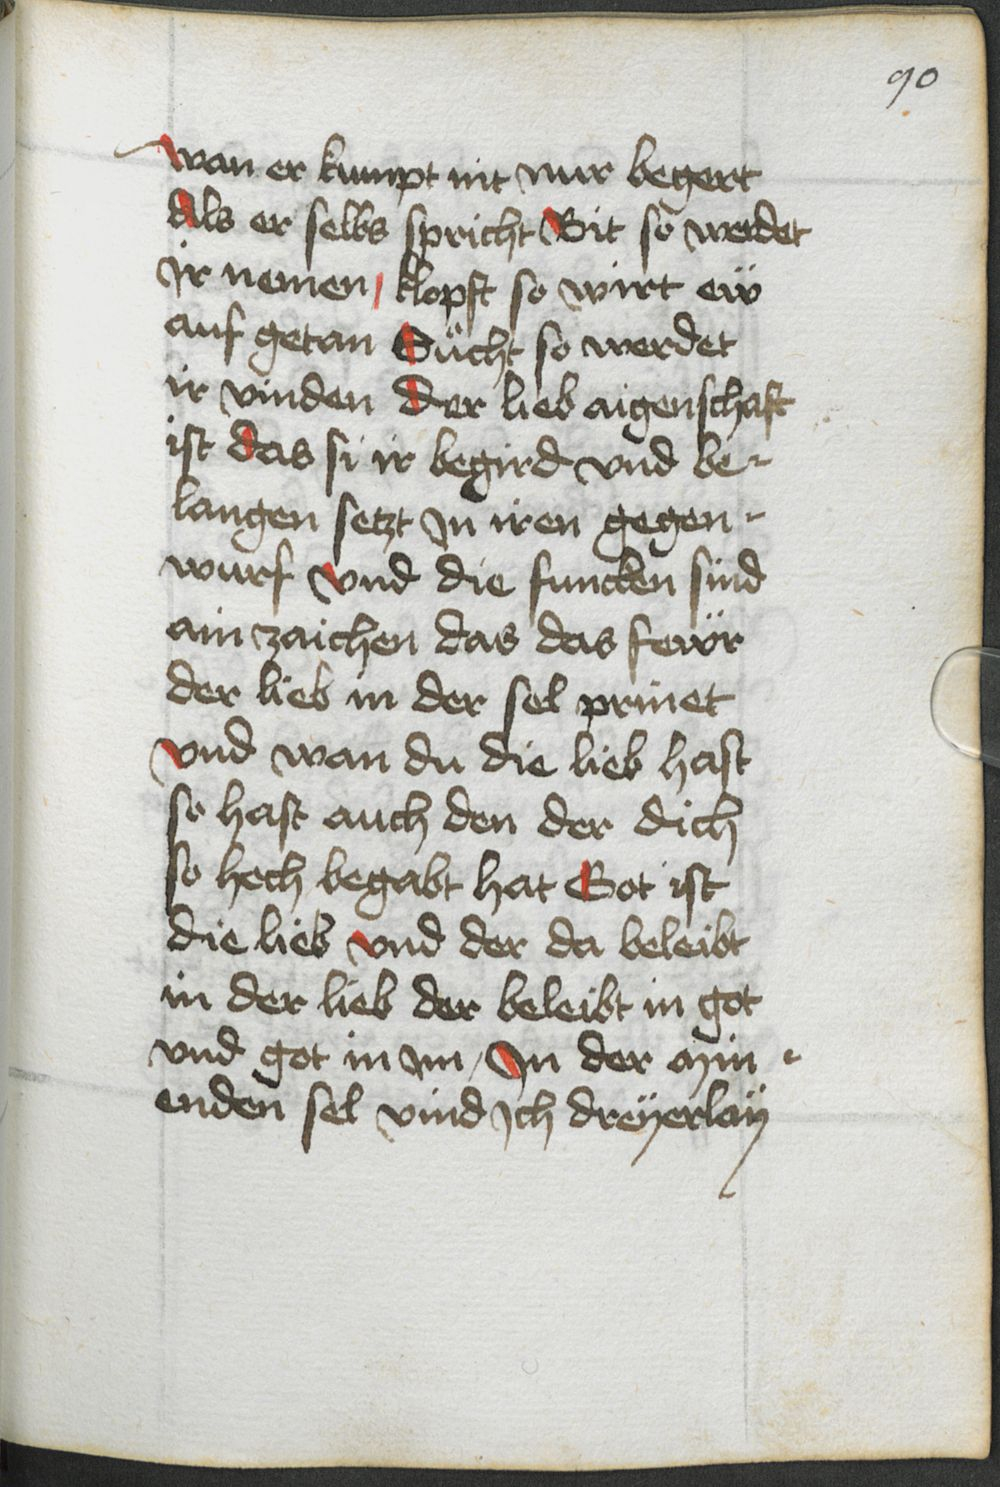 90
wan er kumpt nit nur begert
als er selbs spricht Bit so werdet
ir nemen / klopft so wirt eẅ
auf getan Sücht so werdet
ir vinden der lieb aigenschaft
ist das si ir begird vnd be-
langen setzt in iren gegen-
wurf vnd die funcken sind
ain zaichen das das feẅr
der lieb in der sel prinet
vnd wan du die lieb hast
so hast auch den der dich
so hech begabt hat Got ist
die lieb vnd der da beleibt
in der lieb der beleibt in got
vnd got in im / In der min-
enden sel vind ich dreÿerlaÿ